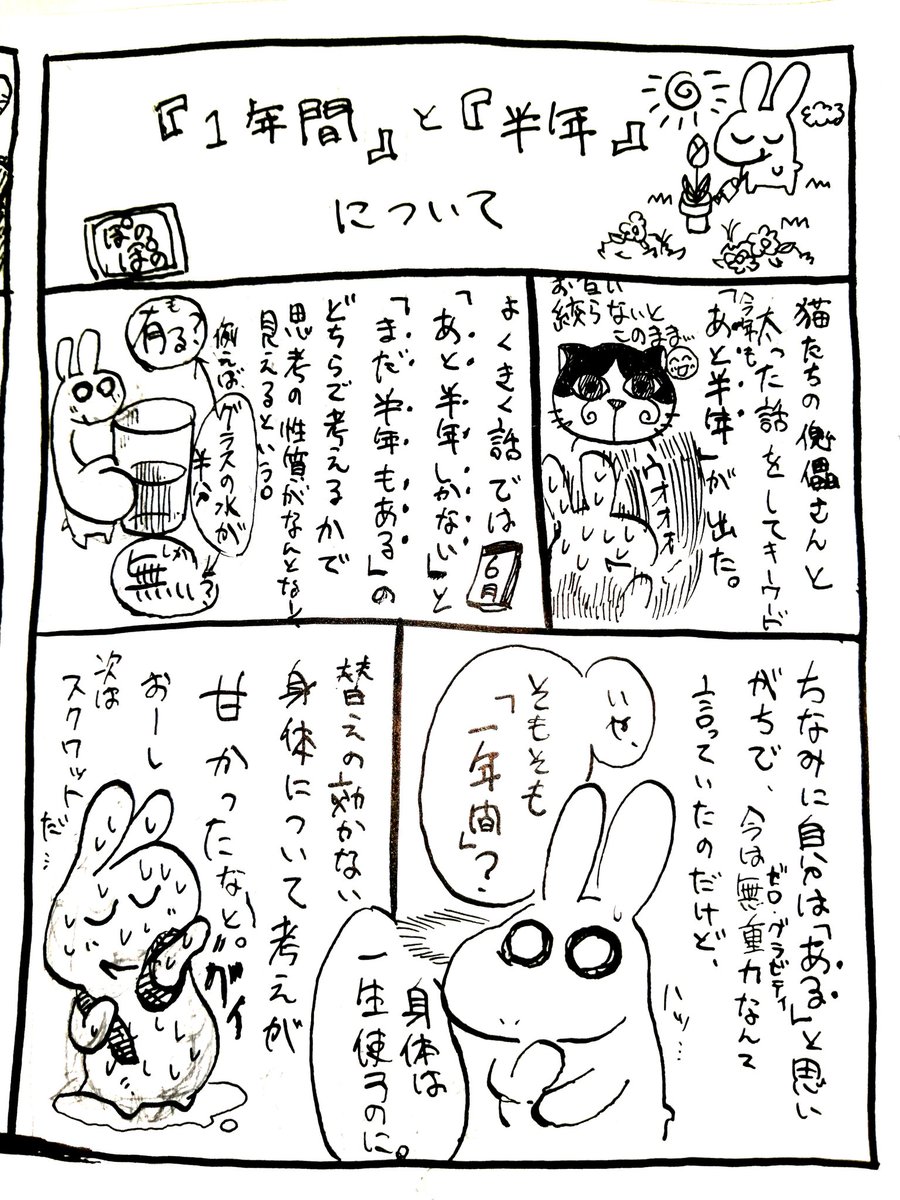 『1年間』と『半年』
について
ぽのぽの
猫たちの傀儡さんと
太った話をしてキーワード
「今年もあと半年」が出た。
お互い
絞らないと
このまま…
ウオオオ
よくきく話では
「あと半年しかない」と
「まだ半年もある」の
どちらで考えるかで
思考の性質がなんとなく
見えるという。
6月
例えば
グラスの水が
半分
も
有る?
しか
無い?
ちなみに自分は「ある」と思い
がちで、今は無重力なんて
ゼロ・グラビティ
言っていたのだけど、
いや、
そもそも
「一年間」?
ハッ…
身体は
一生使うのに。
替えの効かない
身体について考えが
甘かったなと。
グイ
おーし
次は
スクワットだ…